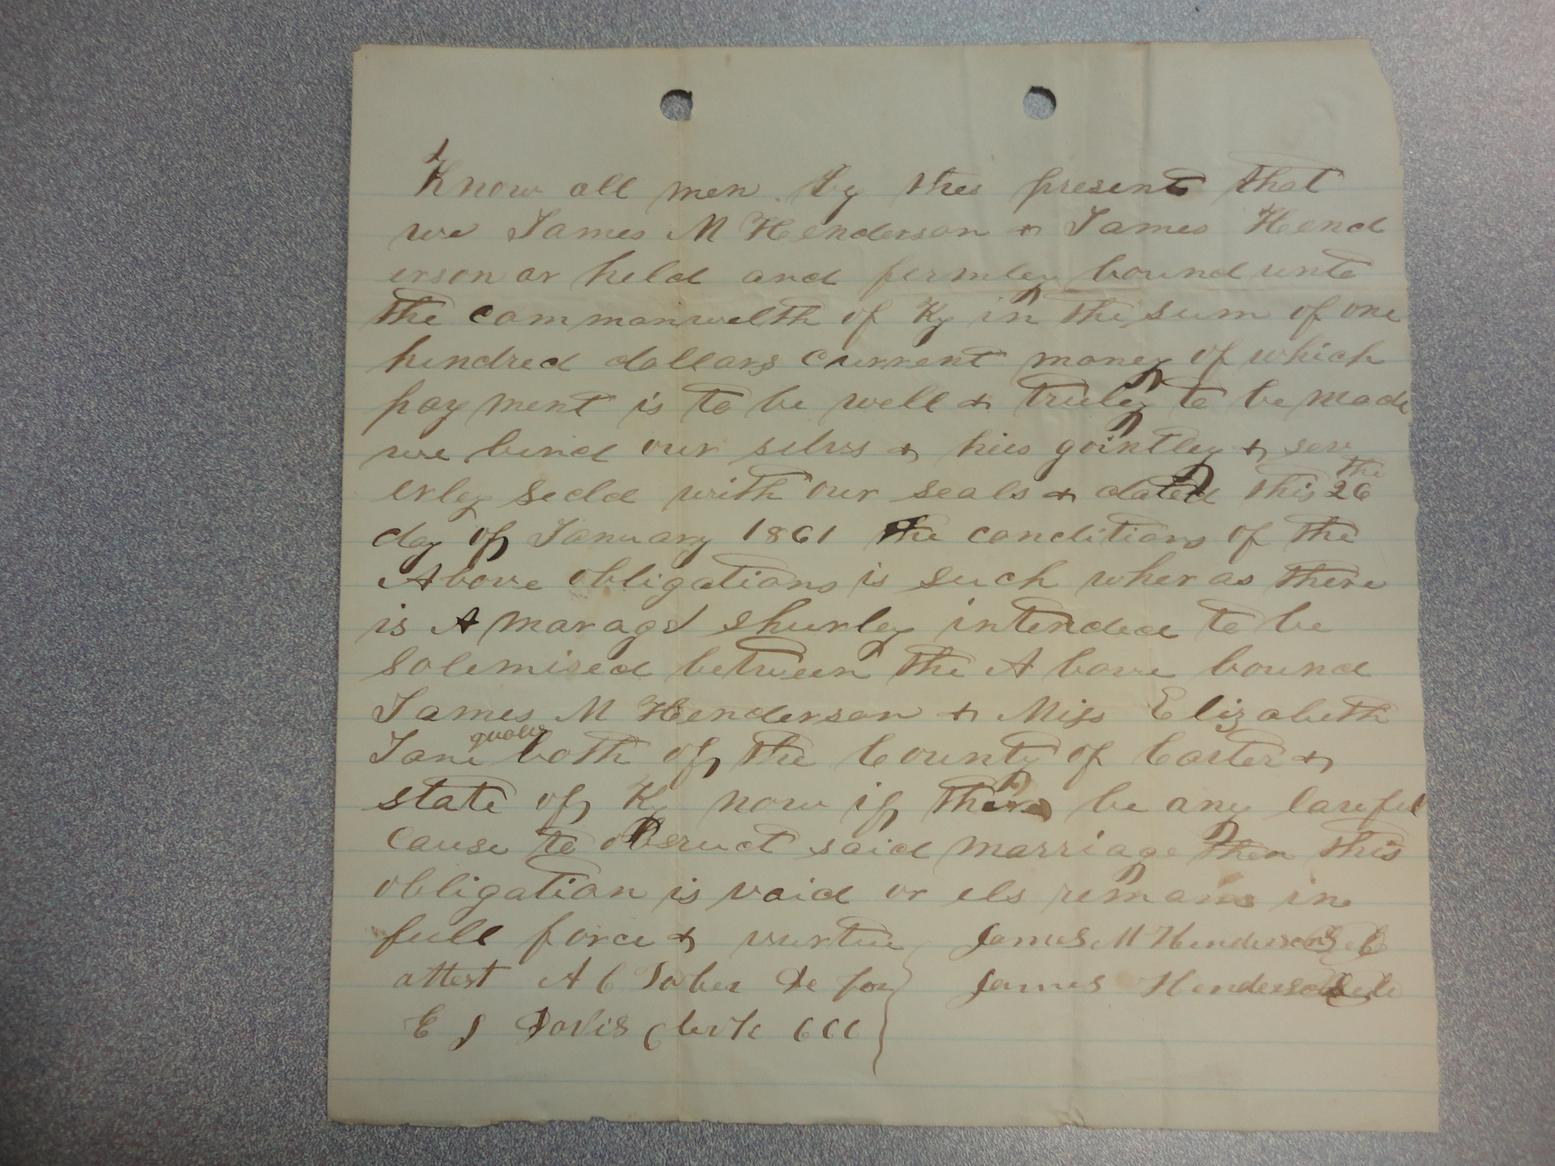 Know all men by thes present that
we James M Henderson & James Hend
erson ar held and fermley bound unto
the commonwelth of Ky in the sum of one
hundred dollars current money of which
payment is to be well & truley to be made
we bind our selvs & hies gointley & sev
erley seeld with our seals & dated this 26 the
day of January 1861 the conditions of the
Above obligations is such wher as there
is A marage shurley intended to be
solemised between the A bove bound
James M Henderson & Miss Elizabeth
Jane both of the County of Carter &
state of Ky now if there be any lawful
cause to obstruct said marriage then this
obligation is void or els remans in
full force & vurtue James M Henderson
attest A C De for James Henderson
E J Davis Clerk CCC